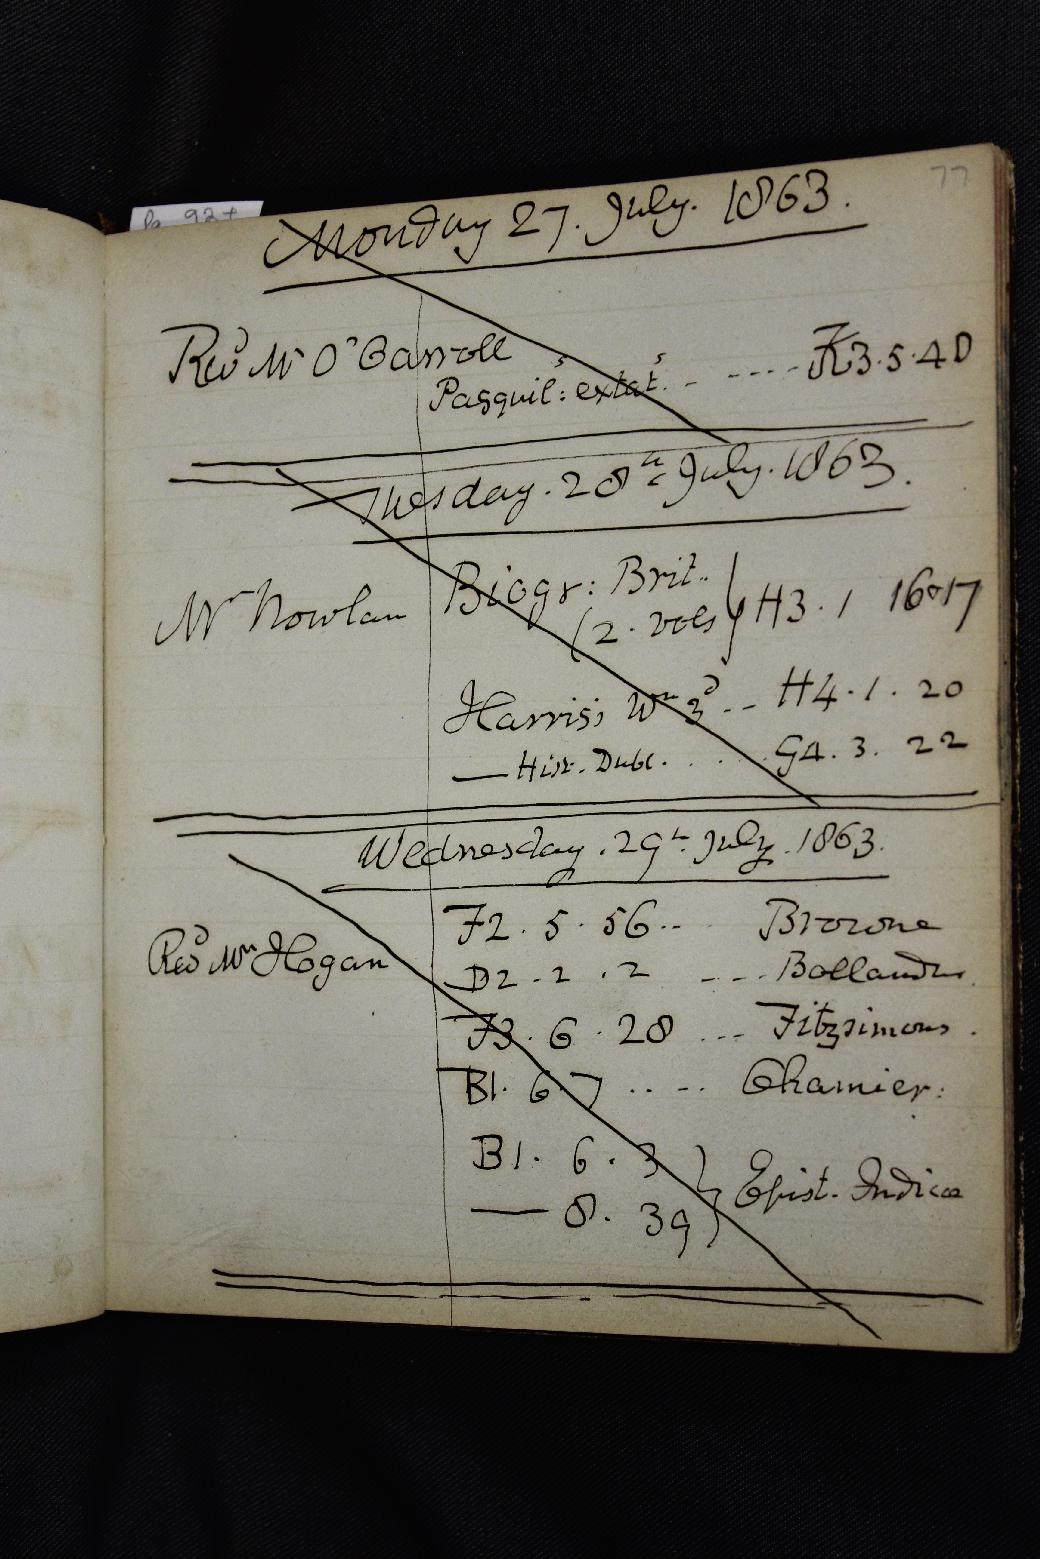 77
Pg 92+
Monday 27. July. 1863.
Revd Mr O'Carroll
Pasquil: extat. - ---- K3.5.40
Tuesday. 28th July. 1863.
Mr Nowlan Biogr: Brit.. } H3.1 16&17
(2. vols
Harris's Wm 3d -- H4.1.20
— Hist. Dubl. .... G4.3.22
Wednesday. 29th July. 1863.
F2.5.56.. Browne
Revd Mr Hogan
D2.2.2 --- Bollandus
F3.6.28 --- Fitzsimons.
B1.67 ..-- Chamier.
B1.6.3 } Epist. Indicae
— 8.39